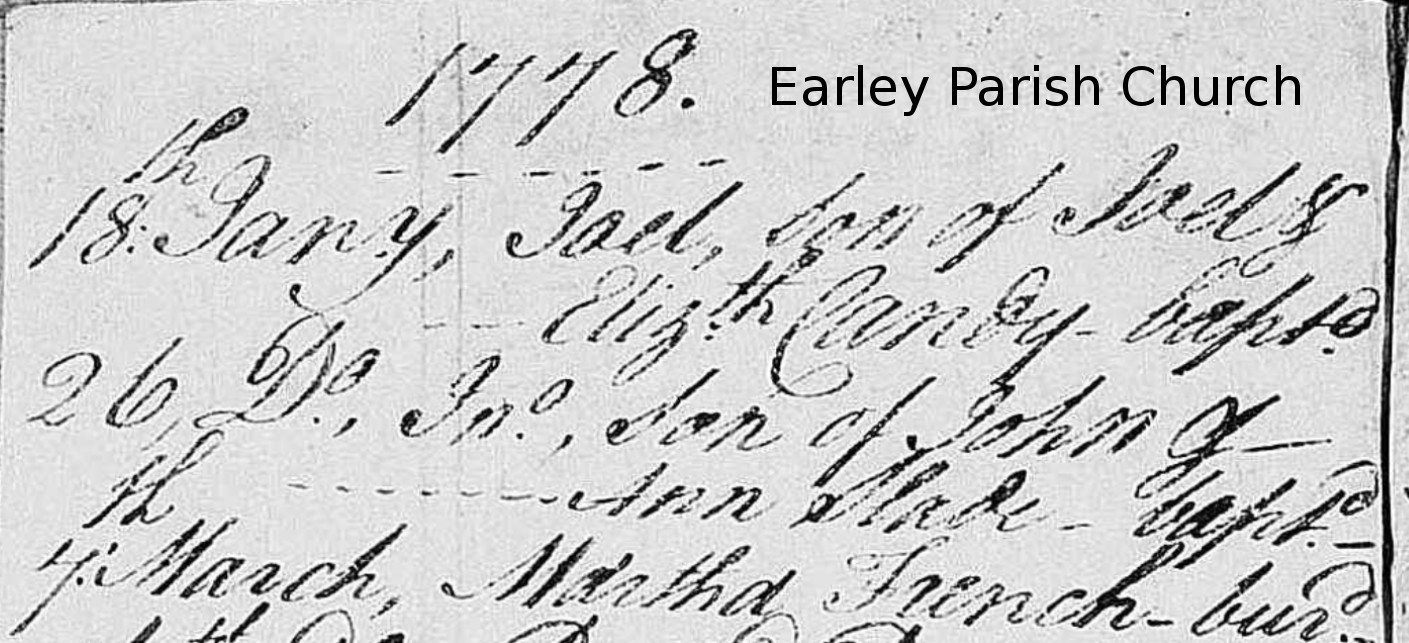 1778. Earley Parish Church
18th Jany, Joel, son of Joel &
Elizth Candy - baptd
26, Do., Jno., son of John &
Ann Slade - baptd.
7th March, Martha French - burd